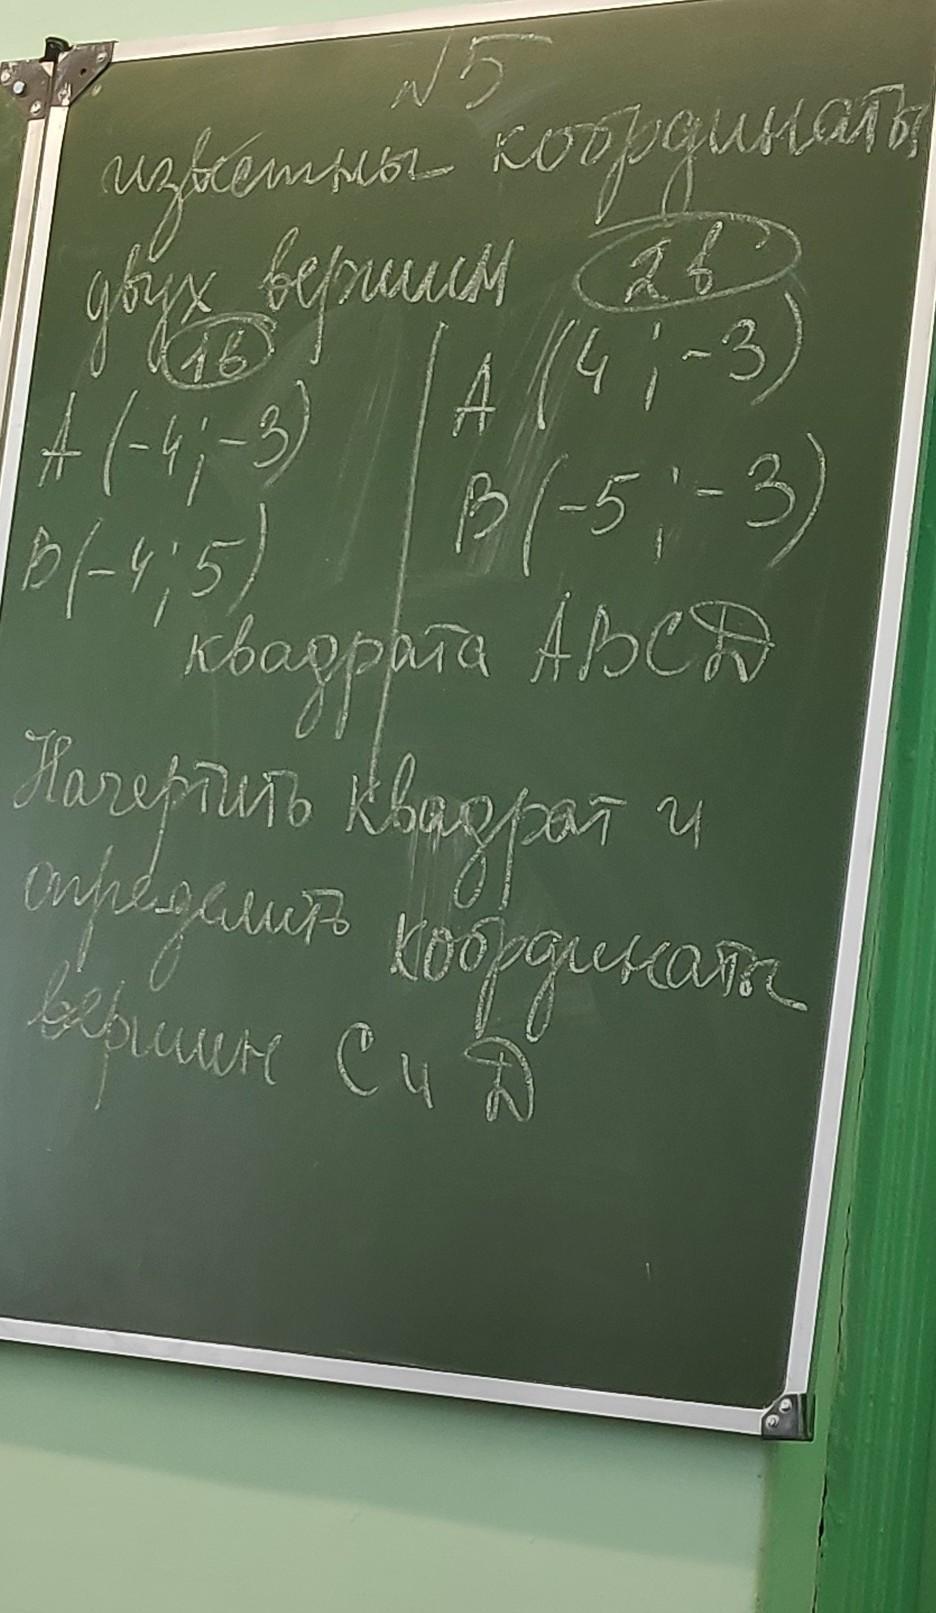 №5
известны координаты
двух вершин
1в
2в
A (-4; -3)
B (-4; 5)
A (4; -3)
B (-5; -3)
квадрата ABCD
Начертить квадрат и
определить координаты
вершин C и D